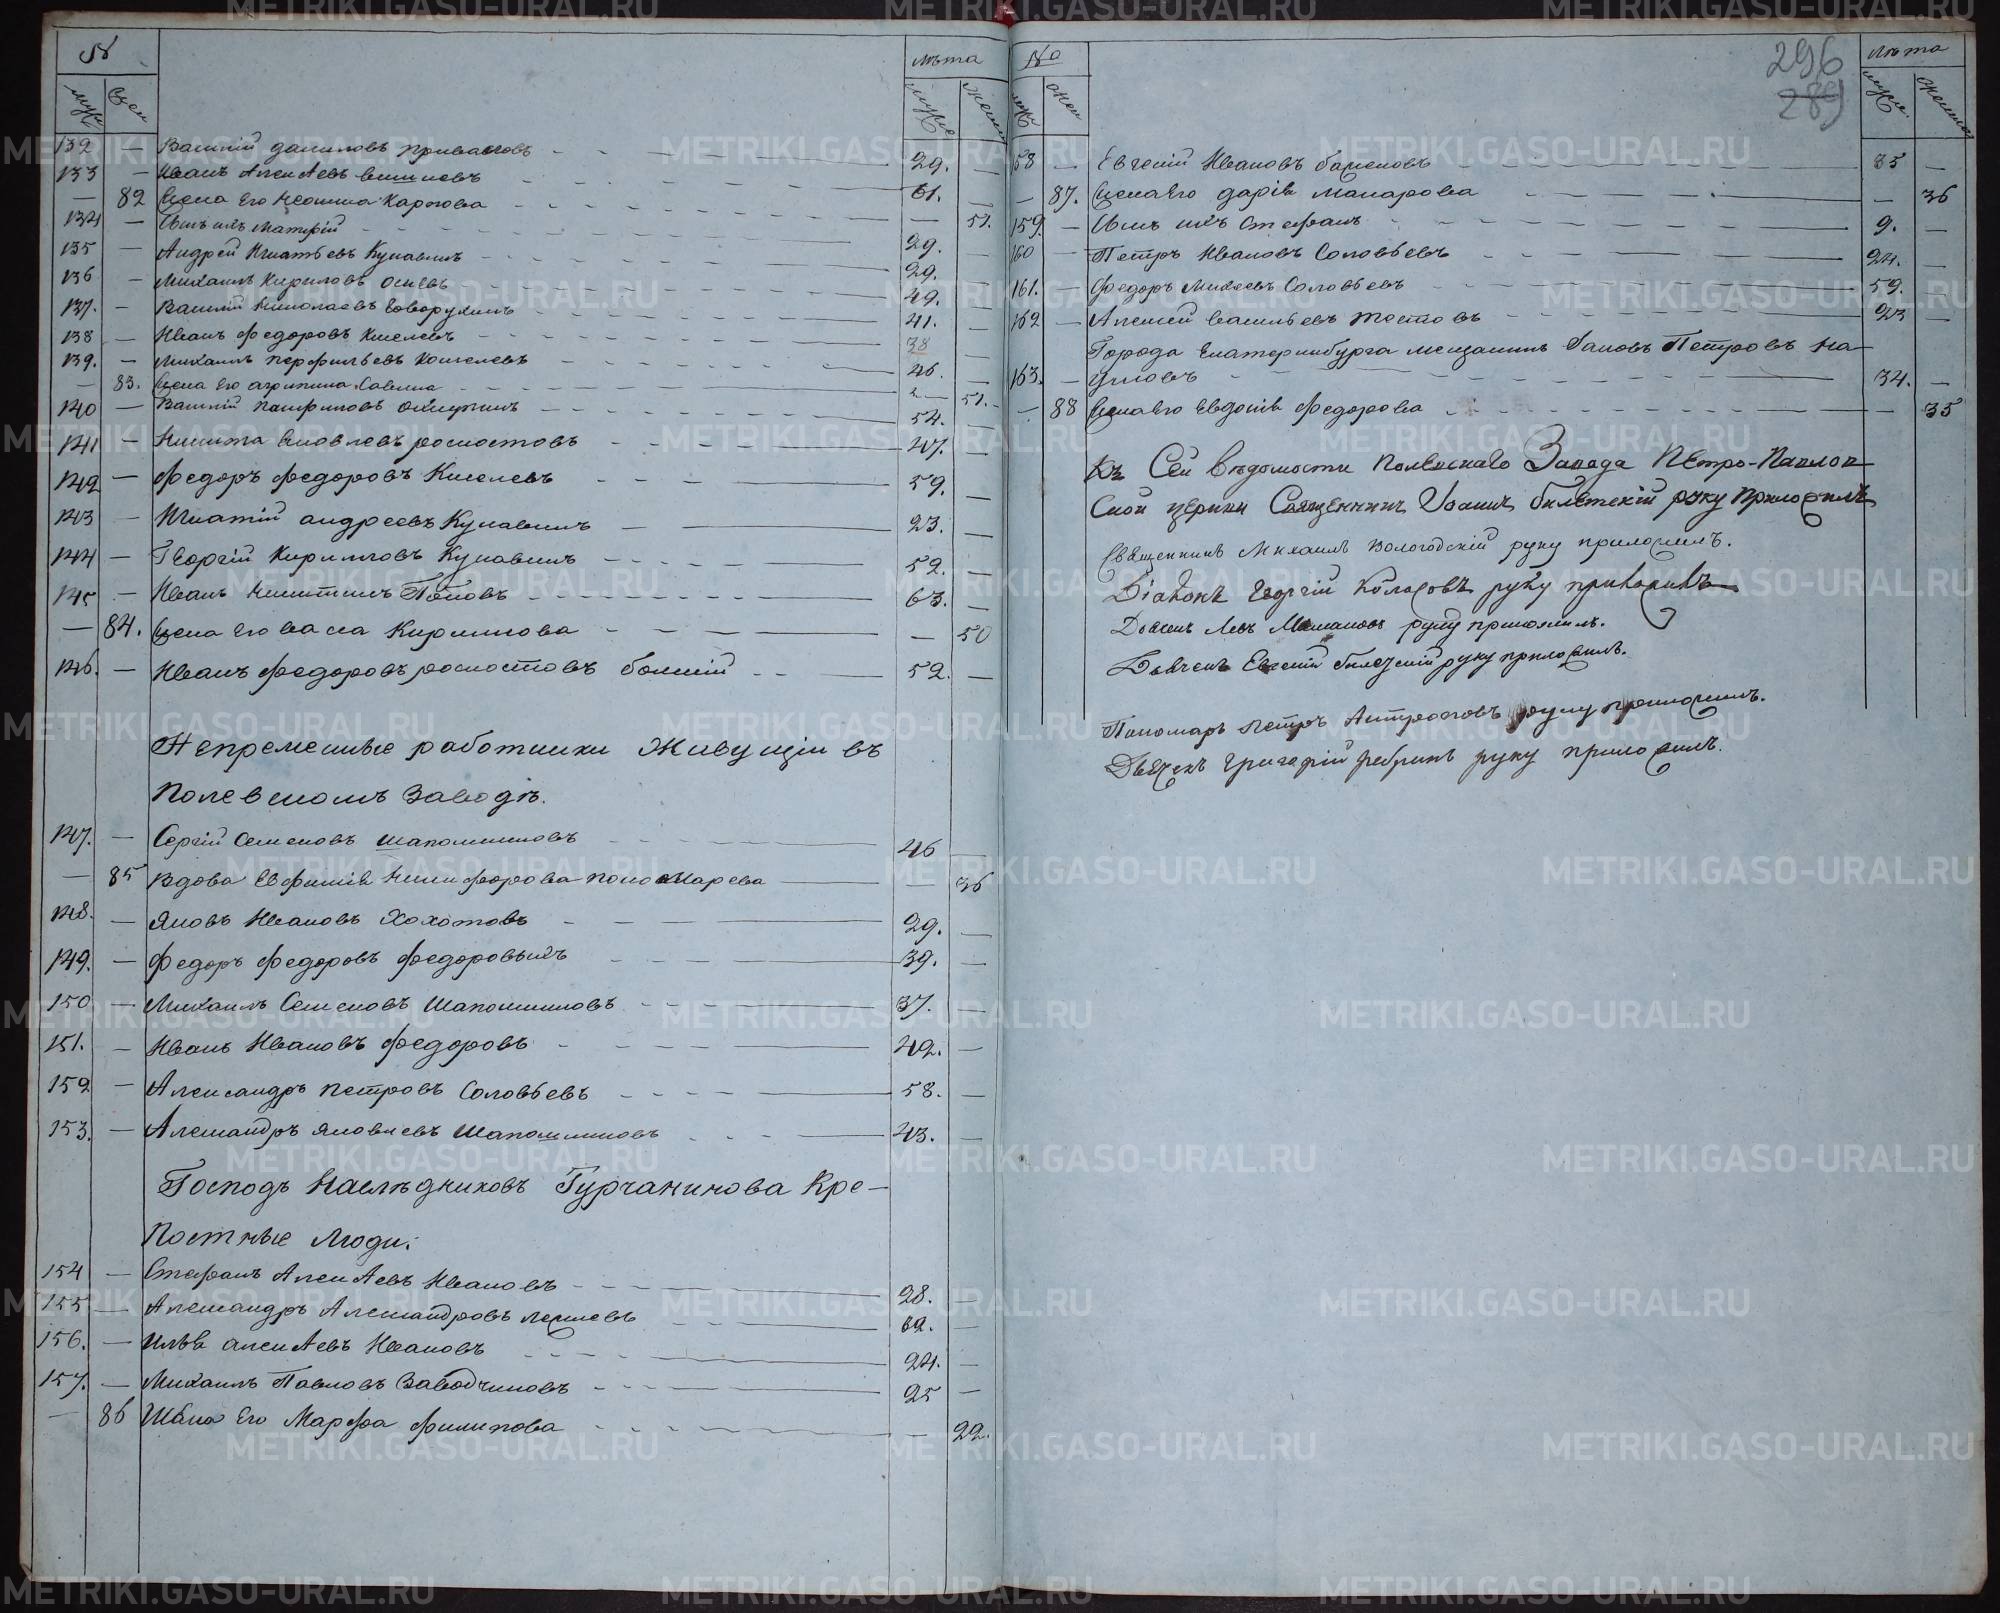 № лѣта
муж жен муж женс
132 — Василій Даниловъ Приваловъ 29. —
133 — Иванъ Алексѣевъ 61. —
— 82 Жена Его Карпова — 51.
134 — Сынъ ихъ Матфій 29. —
135 — Андрей Игнатьевъ Кунавинъ 29. —
136 — Михаилъ Кириловъ 49. —
137. — Василій Николаевъ Говорухинъ 41. —
138 — Иванъ Федоровъ Киселевъ 38 —
139. — Михаилъ Перфильевъ Кошелевъ 46. —
— 83. Жена Его Агрипина Савина — 51.
140 — Василій Панфиловъ 54. —
141 — Никита Яковлевъ Роспостовъ 47. —
142 — Федоръ Федоровъ Киселевъ 59. —
143 — Игнатій Андреевъ Кунавинъ 23. —
144 — Георгій Кирилловъ Кунавинъ 52. —
145 — Иванъ Никитинъ Поповъ 63. —
— 84. Жена Его Васса Кирилова — 50
146. — Иванъ Федоровъ Роспостовъ большій 52. —
Непременные работники Живущіи въ
Полевскомъ Заводѣ.
147. — Сергій Семеновъ Шапошниковъ 46
— 85 Вдова Евфимія Никифорова Пономарева — 36
148. — Яковъ Ивановъ Хохотовъ 29. —
149. — Федоръ Федоровъ Федоровыхъ 39. —
150 — Михаилъ Семеновъ Шапошниковъ 37. —
151. — Иванъ Ивановъ Федоровъ 42. —
152 — Александръ Петровъ Соловьевъ 58. —
153. — Александръ Яковлевъ Шапошниковъ 43. —
Господъ Наслѣдниковъ Турчанинова Кре-
постные Люди:
154 — Стефанъ Алексѣевъ Ивановъ 28. —
155 — Александръ Александровъ 62. —
156. — Илья Алексѣевъ Ивановъ 24. —
157. — Михаилъ Павловъ Заводчиковъ 25 —
— 86 Жена Его Марфа Филипова — 22.
№ 296 лѣта
289
муж жен муж. женс
158 — Евгеній Ивановъ Баженовъ 35 —
— 87. Жена Его Дарія Макарова — 36
159. — Сынъ ихъ Стефанъ 9. —
160 — Петръ Ивановъ Соловьевъ 24. —
161. — Федоръ Михеевъ Соловьевъ 59. —
162 — Алексей Васильевъ 23 —
Города Екатеринбурга мещанинъ Яковъ Петровъ На-
163. — уговъ 34. —
— 88 Жена Его Евдокія Федорова — 35
Къ Сей Вѣдомости Полевскаго Завода Петро-Павлов
ской церкви Священникъ Іоаннъ Билетскій руку приложилъ
Священникъ Михаилъ Вологодскій руку приложилъ.
Діаконъ Георгій Колосовъ руку приложилъ
Дьячекъ Левъ руку приложилъ.
Дьячекъ Евгеній руку приложилъ.
Пономарь Петръ руку приложилъ.
Дьячекъ Григорій Ребринъ руку приложилъ.